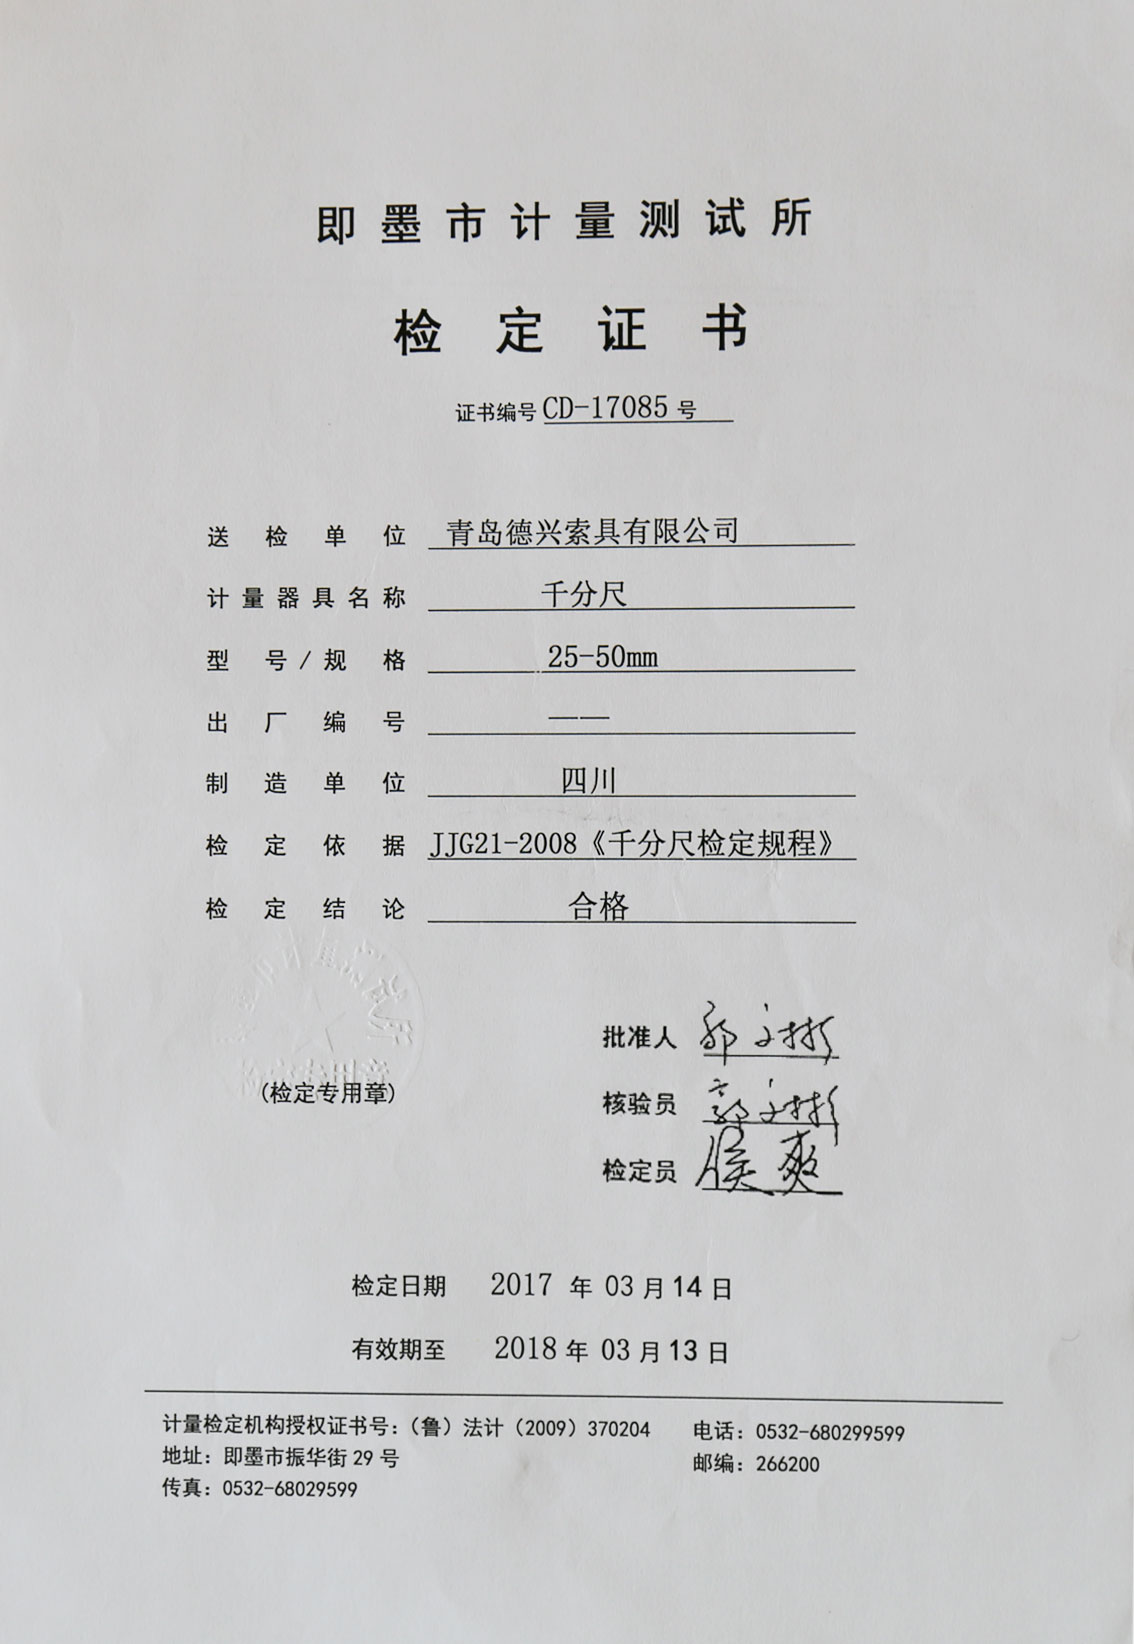 即墨市计量测试所
检定证书
证书编号 CD-17085 号
送检单位 青岛德兴索具有限公司
计量器具名称 千分尺
型号/规格 25-50mm
出厂编号 ——
制造单位 四川
检定依据 JJG21-2008《千分尺检定规程》
检定结论 合格
市计量测试所
检定专用章
(检定专用章)
批准人 郭文彬
核验员 郭文彬
检定员 侯爽
检定日期 2017 年 03 月 14 日
有效期至 2018 年 03 月 13 日
计量检定机构授权证书号：（鲁）法计（2009）370204 电话：0532-680299599
地址：即墨市振华街 29 号 邮编：266200
传真：0532-68029599